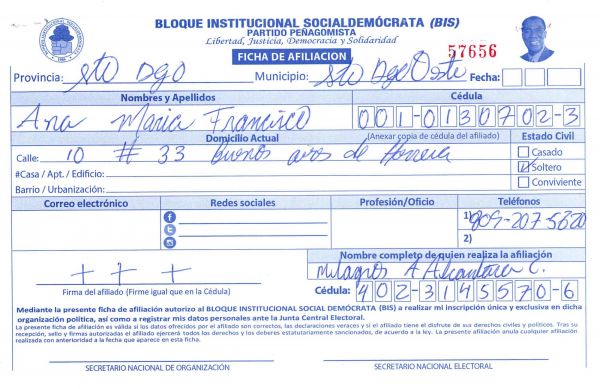 BLOQUE INSTITUCIONAL SOCIALDEMÓCRATA (BIS)
PARTIDO PEÑAGOMISTA
Libertad, Justicia, Democracia y Solidaridad
FICHA DE AFILIACION
57656
Provincia: Sto Dgo Municipio: Sto Dgo Oeste Fecha:
Nombres y Apellidos Cédula
Ana Maria Francisco 001-0130702-3
Domicilio Actual (Anexar copia de cédula del afiliado) Estado Civil
Calle: 10 # 33 Buenos de Herrera Casado
#Casa / Apt. / Edificio: Soltero
Barrio / Urbanización: Conviviente
Correo electrónico Redes sociales Profesión/Oficio Teléfonos
1) 809-207-5820
2)
Nombre completo de quien realiza la afiliación
+ + + Milagros A Alcantara C.
Firma del afiliado (Firme igual que en la Cédula) Cédula: 402-3145570-6
Mediante la presente ficha de afiliación autorizo al BLOQUE INSTITUCIONAL SOCIAL DEMÓCRATA (BIS) a realizar mi inscripción única y exclusiva en dicha
organización política, así como a registrar mis datos personales ante la Junta Central Electoral.
La presente ficha de afiliación es válida si los datos ofrecidos por el afiliado son correctos, las declaraciones veraces y si el afiliado tiene el disfrute de sus derechos civiles y políticos. Tras su
recepción, sello y firmas autorizadas el afiliado ejercerá todos los derechos y los deberes estatutariamente sancionados, de acuerdo a la ley. La presente afiliación anula cualquier afiliación
realizada con anterioridad a la fecha que aparece en esta ficha.
SECRETARIO NACIONAL DE ORGANIZACIÓN SECRETARIO NACIONAL ELECTORAL